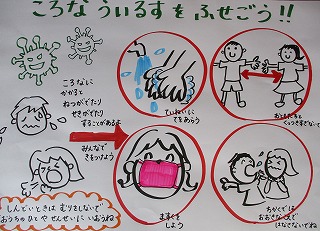 ころな ういるすを ふせごう!!
ころなに
かかると
ねつがでたり
せきがでたり
することがあるよ
みんなで
きをつけよう
ていねいに
てをあらう
おともだちと
くっつきすぎないで
ますくを
しよう
ちかくでは
おおきなこえで
はなさないでね
しんどいときは むりをしないで
おうちのひとや せんせいに いおうね